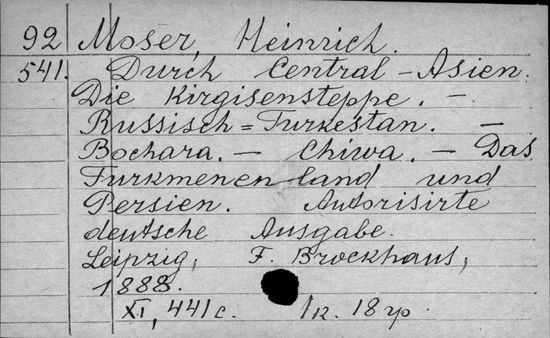 92 Moser, Heinrich.
541. Durch Central-Asien.
Die Kirgisensteppe. —
Russisch=Turkestan. —
Bochara. — Chiwa. — Das
Turkmenenland und
Persien. Autorisirte
deutsche Ausgabe.
Leipzig, F. Brockhaus,
1888.
XI, 441 с. 1к. 18 гр.